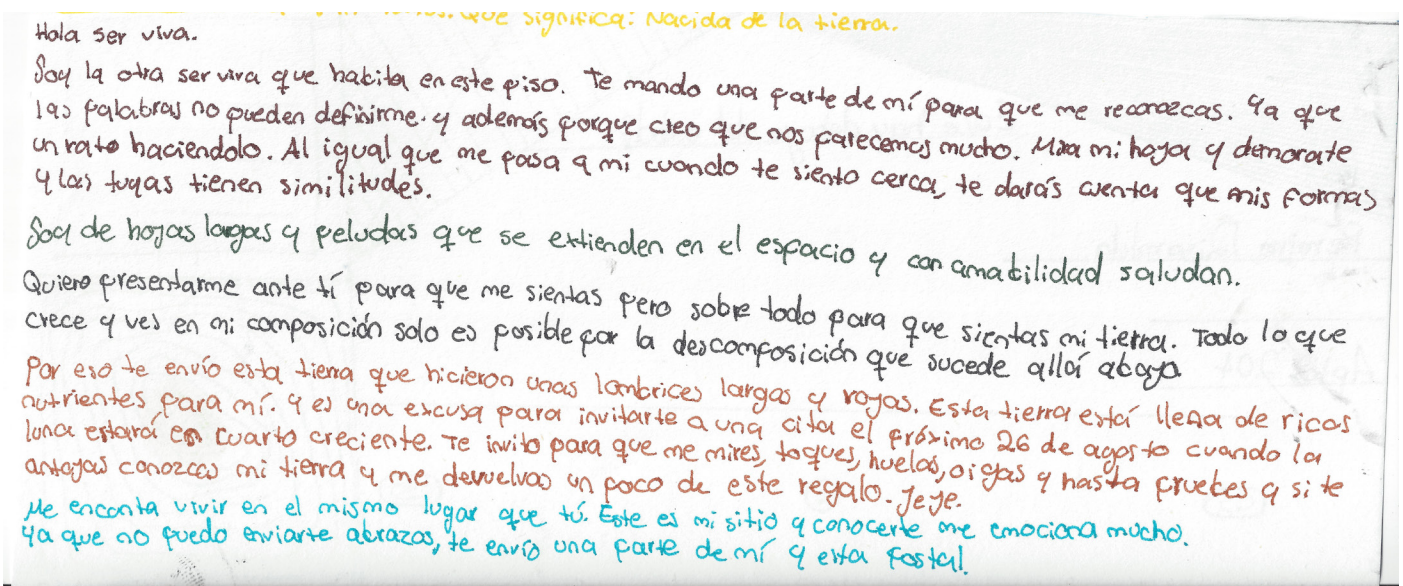 Que significa: Nacida de la tierra.
Hola ser viva.
Soy la otra ser viva que habita en este piso. Te mando una parte de mí para que me reconozcas. Ya que
las palabras no pueden definirme. y además porque creo que nos parecemos mucho. Mira mi hoja y demorate
un rato haciendolo. Al igual que me pasa a mi cuando te siento cerca, te darás cuenta que mis formas
y las tuyas tienen similitudes.
Soy de hojas largas y peludas que se extienden en el espacio y con amabilidad saludan.
Quiero presentarme ante tí para que me sientas pero sobre todo para que sientas mi tierra. Todo lo que
crece y ves en mi composición solo es posible por la descomposición que sucede allá abajo
Por eso te envío esta tierra que hicieron unas lombrices largas y rojas. Esta tierra está llena de ricos
nutrientes para mí. y es una excusa para invitarte a una cita el próximo 26 de agosto cuando la
luna estará en cuarto creciente. Te invito para que me mires, toques, huelas, oigas y hasta pruebes y si te
antojas conozcas mi tierra y me devuelvas un poco de este regalo. Jeje.
Me encanta vivir en el mismo lugar que tú. Este es mi sitio y conocerte me emociona mucho.
Ya que no puedo enviarte abrazos, te envío una parte de mí y esta postal.